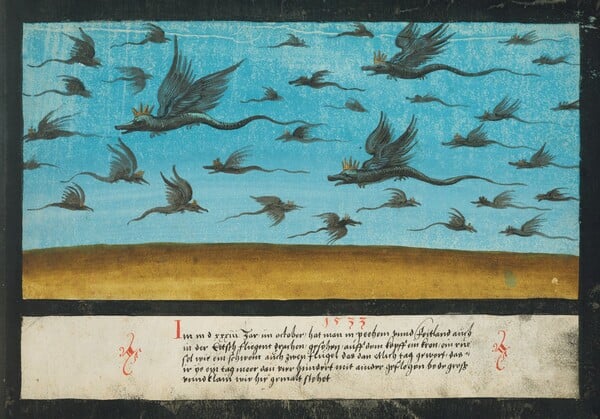 1533
Im m d xxxiii Jar im october hat man in pechem vnnd Foitland auch
in der fliegent drachen gesehen auff dem kopff ein kron ein rus
sel wie ein schwein auch zwen flugel des das etlich tag gewert das
ir ein tag meer dan vier hundert mit ainder geflogen bede groß
vnnd klain wie hir gemalt stehet